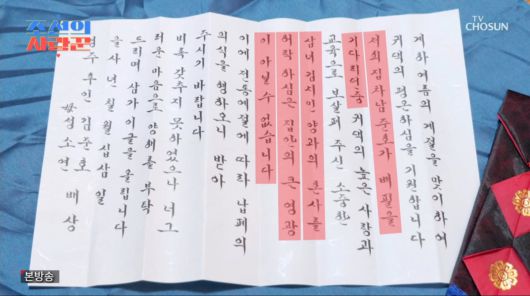 조선의
사랑꾼
TV
CHOSUN
계하 여름의 계절을 맞이하여
귀댁의 평온하심을 기원합니다
저희 집 차남 준호가 배필을
기다리던 중 귀댁의 높은 사랑과
교육으로 보살펴 주신 소중한
삼녀 김지민 양과의 혼사를
허락하심은 집안의 큰 영광
이 아닐 수 없습니다
이에 전통예절에 따라 납폐의
의식을 행하오니 받아
주시기 바랍니다
비록 갖추지 못하였으나 너그
러운 마음으로 양해를 부탁
드리며 삼가 이 글을 올립니다
을사년 칠월 십삼일
후인 김준호
소연 배상
본방송